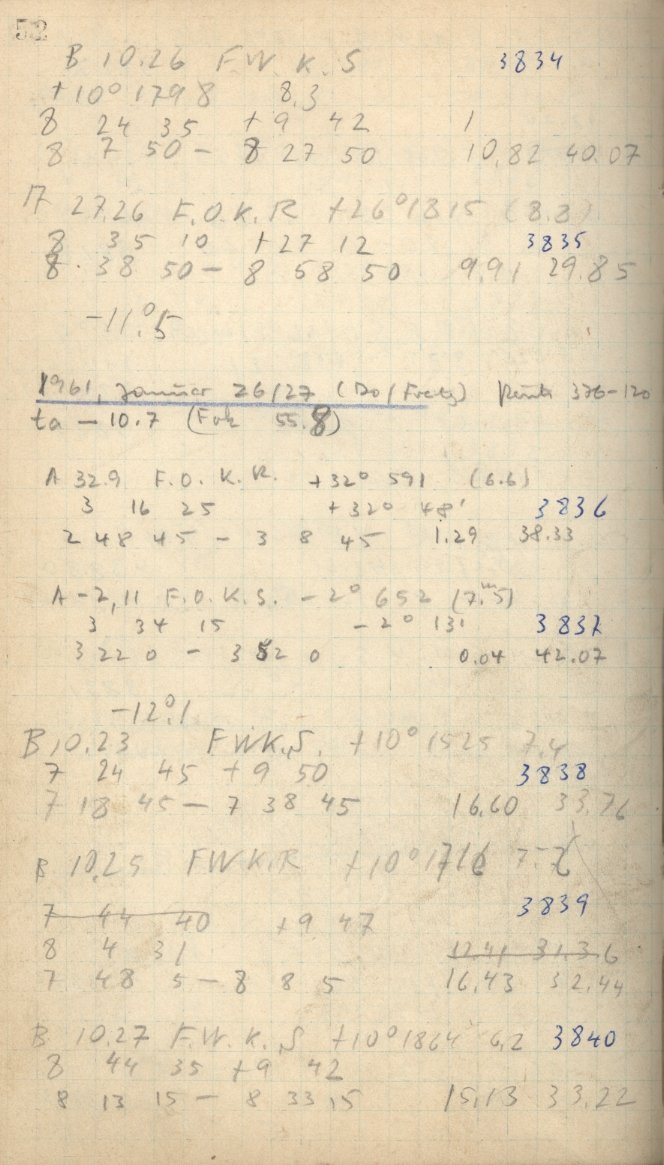 52
B 10.26 F W. K. S 3834
+10° 1798 8.3
8 24 35 +9 42 1
8 7 50 - 8 27 50 10.82 40.07
27.26 F.O.K.R +26° 1815 (8.8)
8 35 10 +27 12 3835
8 38 50 - 8 58 50 9.91 29.85
-11°.5
1961, Januar 26/27 (Do/Freitg) 376-120
ta - 10.7 (Fok 55.8)
A 32.9 F.O.K.R. +32° 591 (6.6)
3 16 25 +32° 48' 3836
2 48 45 - 3 8 45 1.29 38.33
A -2,11 F.O.K.S. -2° 652 (7.m5)
3 34 15 -2° 13' 3837
3 22 0 - 3 52 0 0.04 42.07
-12°.1
B 10.23 FWK.S. +10° 1525 7.4
7 24 45 +9 50 3838
7 18 45 - 7 38 45 16.60 33.76
B 10.25 FWK.R +10° 1716
7 44 40 +9 47 3839
8 4 31 12.41 31.36
7 48 5 - 8 8 5 16.43 32.44
B 10.27 F.W.K.S +10° 1864 6.2 3840
8 44 35 +9 42
8 13 15 - 8 33 15 15.13 33.22